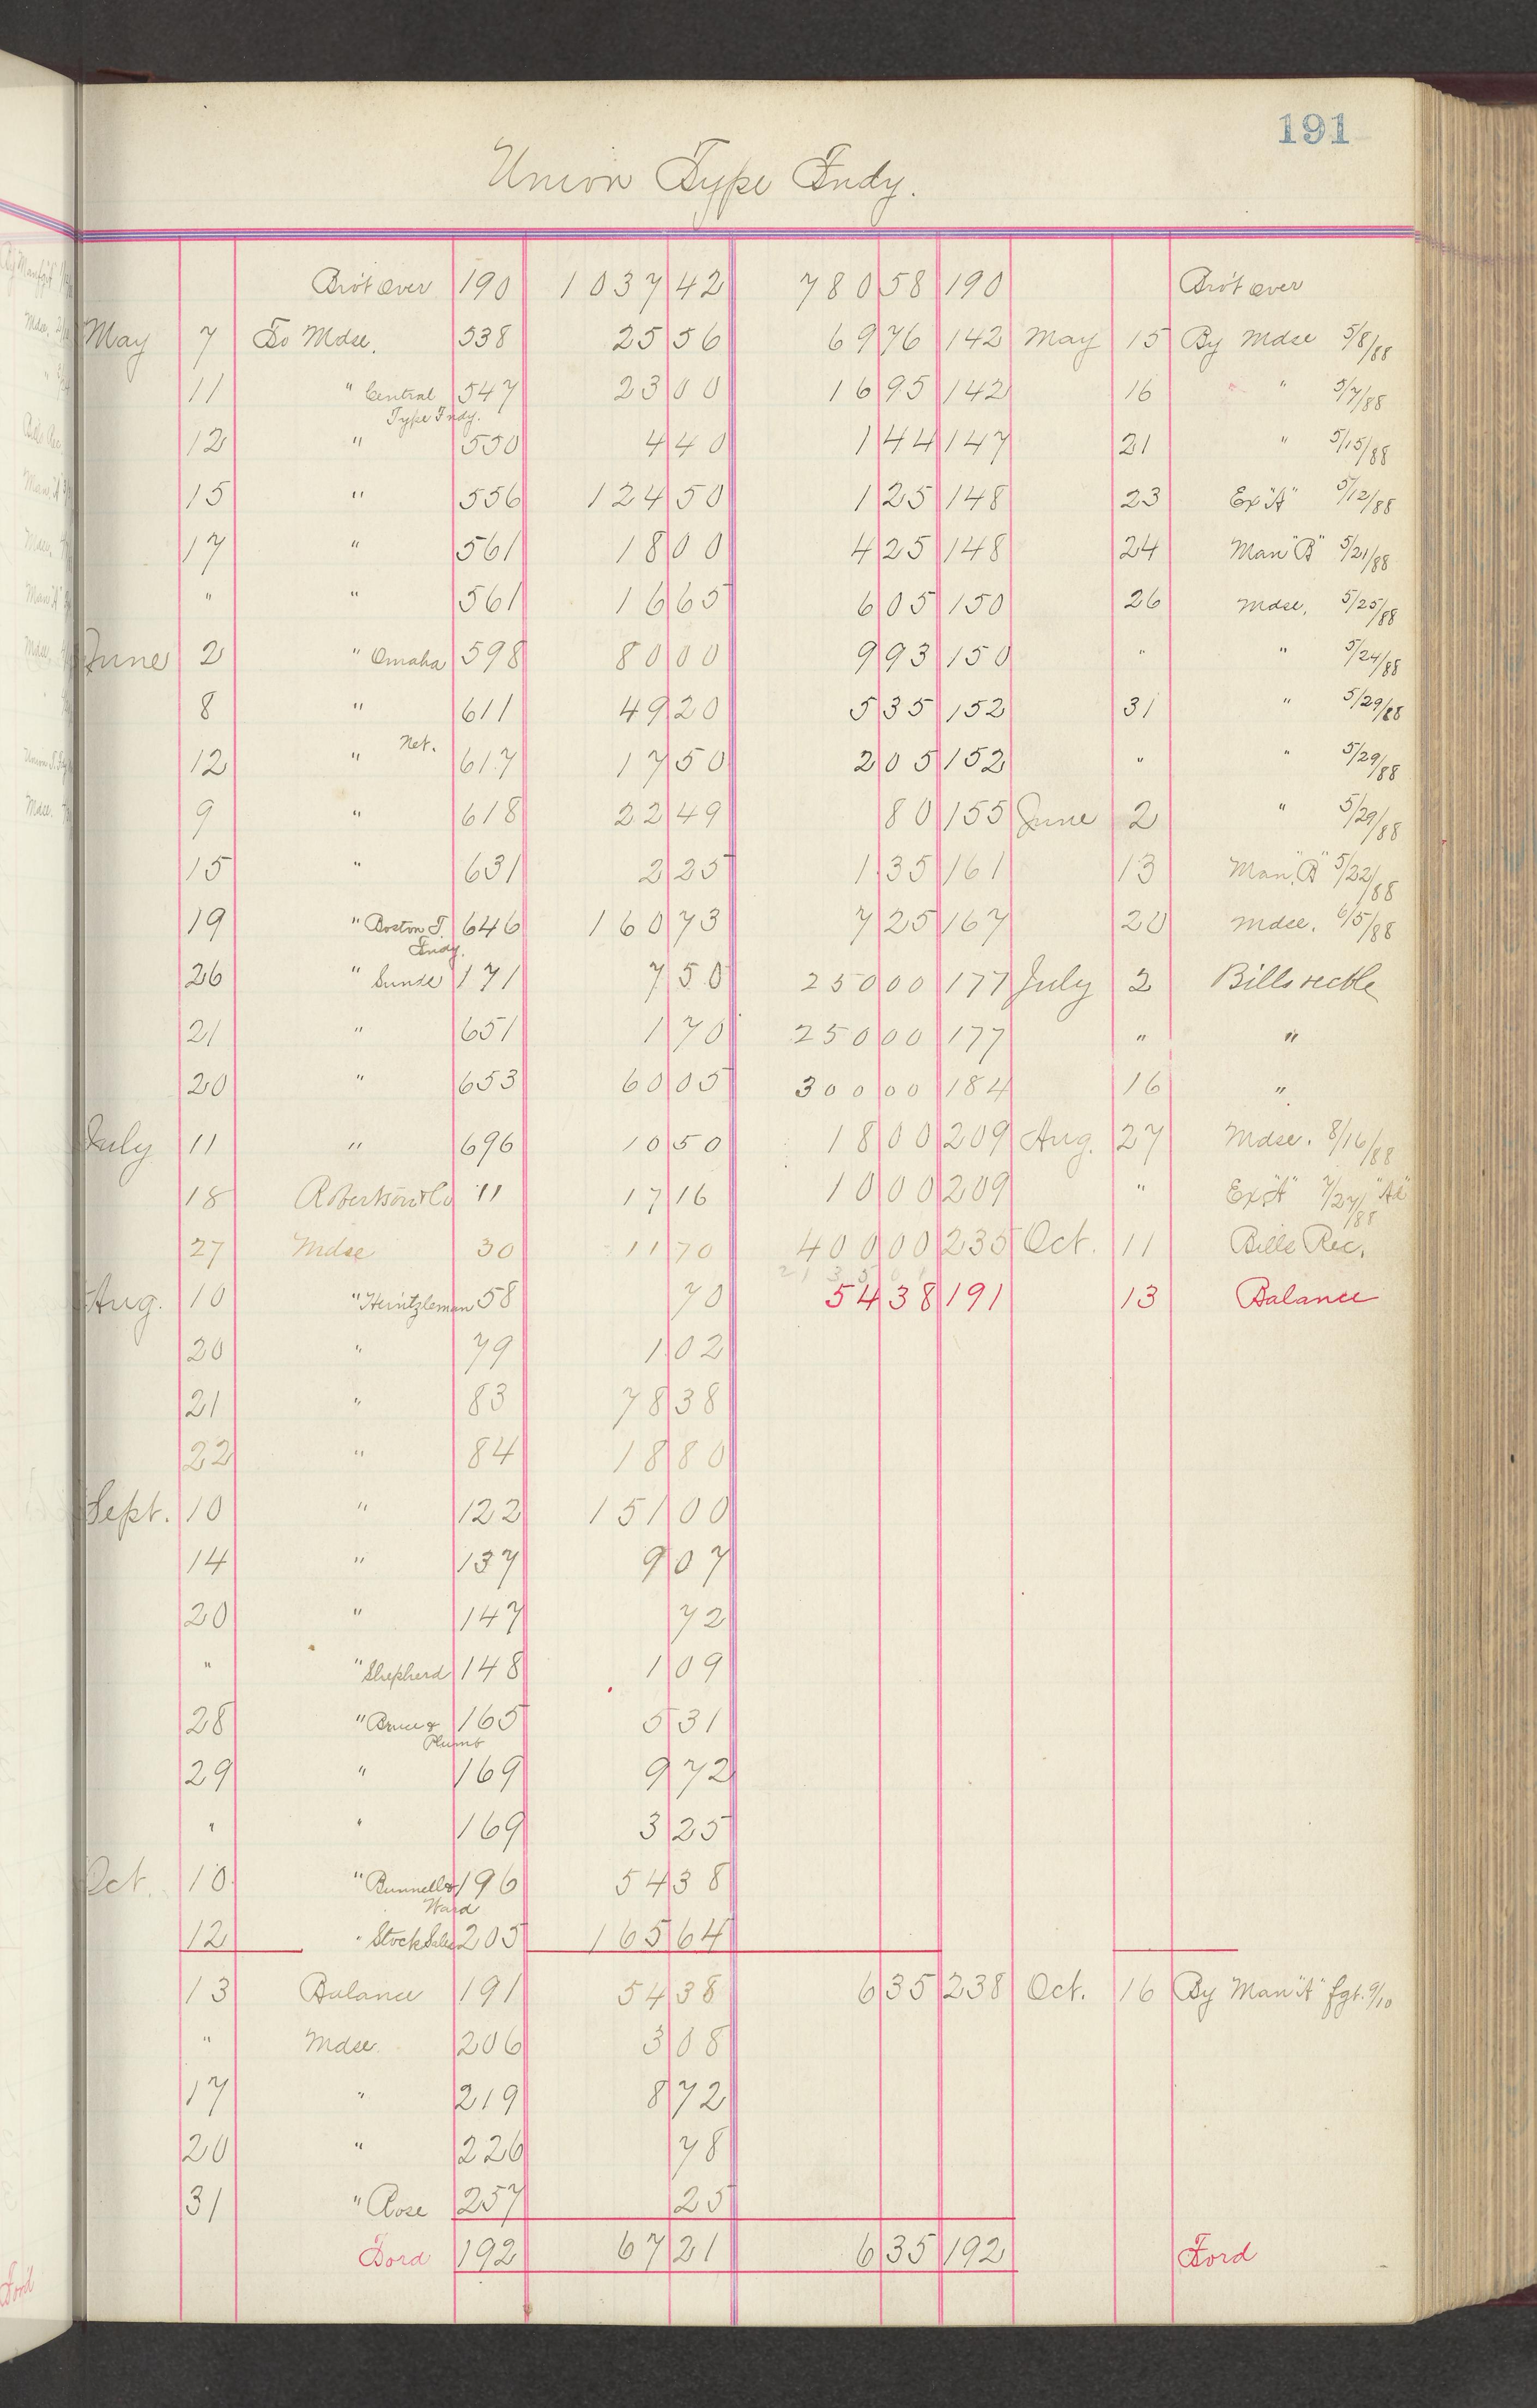 191
Union Type Fndy.
Bro't Over 190 1037 42 780 58 190 Bro't Over
May 7 To Mdse. 538 25 56 69 76 142 May 15 By Mdse 5/8/88
11 " Central Type Fndy. 547 23 00 16 95 142 16 " 5/7/88
12 " 550 4 40 1 44 147 21 " 5/15/88
15 " 556 124 50 1 25 148 23 Ex "A" 5/12/88
17 " 561 18 00 4 25 148 24 Man "B" 5/21/88
" " 561 16 65 6 05 150 26 Mdse. 5/25/88
June 2 " Omaha 598 80 00 9 93 150 " " 5/24/88
8 " 611 49 20 5 35 152 31 " 5/29/88
12 " Net. 617 17 50 2 05 152 " " 5/29/88
9 " 618 22 49 80 155 June 2 " 5/29/88
15 " 631 2 25 1 35 161 13 Man "B" 5/22/88
19 " Boston T. Fndy. 646 160 73 7 25 167 20 Mdse. 6/5/88
26 " Sunse 171 7 50 250 00 177 July 2 Bills recble
21 " 651 1 70 250 00 177 " "
20 " 653 60 05 300 00 184 16 "
July 11 " 696 10 50 18 00 209 Aug. 27 Mdse. 8/16/88
18 Robertson & Co 11 17 16 10 00 209 " Ex "A" 7/27/88 "Ad"
27 Mdse 30 11 70 400 00 235 Oct. 11 Bills Rec.
Aug. 10 " Heintzleman 58 70 54 38 191 13 Balance
20 " 79 1 02
21 " 83 78 38
22 " 84 18 80
Sept. 10 " 122 151 00
14 " 137 9 07
20 " 147 72
" " Shepherd 148 1 09
28 " Bruce & Plumb 165 5 31
29 " 169 9 72
" " 169 3 25
Oct. 10 " Bunnell & Ward 196 54 38
12 " Stock Sales 205 165 64
13 Balance 191 54 38 6 35 238 Oct. 16 By Man "A" fgt. 9/10
" Mdse. 206 3 08
17 " 219 8 72
20 " 226 78
31 " Rose 257 25
Ford 192 67 21 6 35 192 Ford